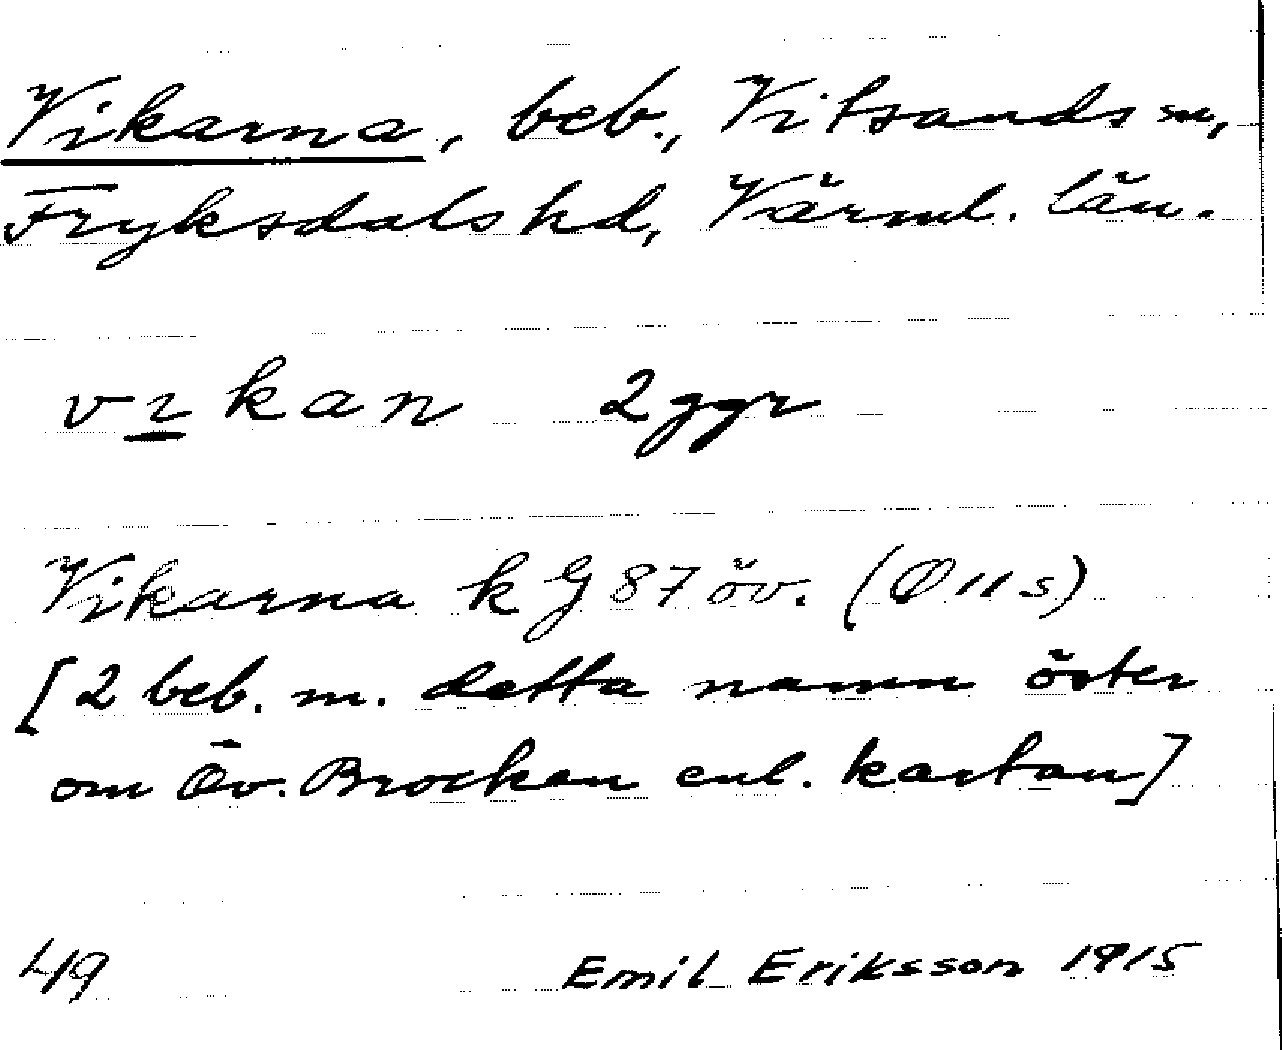 Vikarna, beb., Vitsands sn,
Fryksdals hd, Värml. län.
vıkan 2 ggr
Vikarna k G 87 öv. (Ö 11 s)
[2 beb. m. detta namn öster
om Öv. Brockan enl. kartan]
49 Emil Eriksson 1915